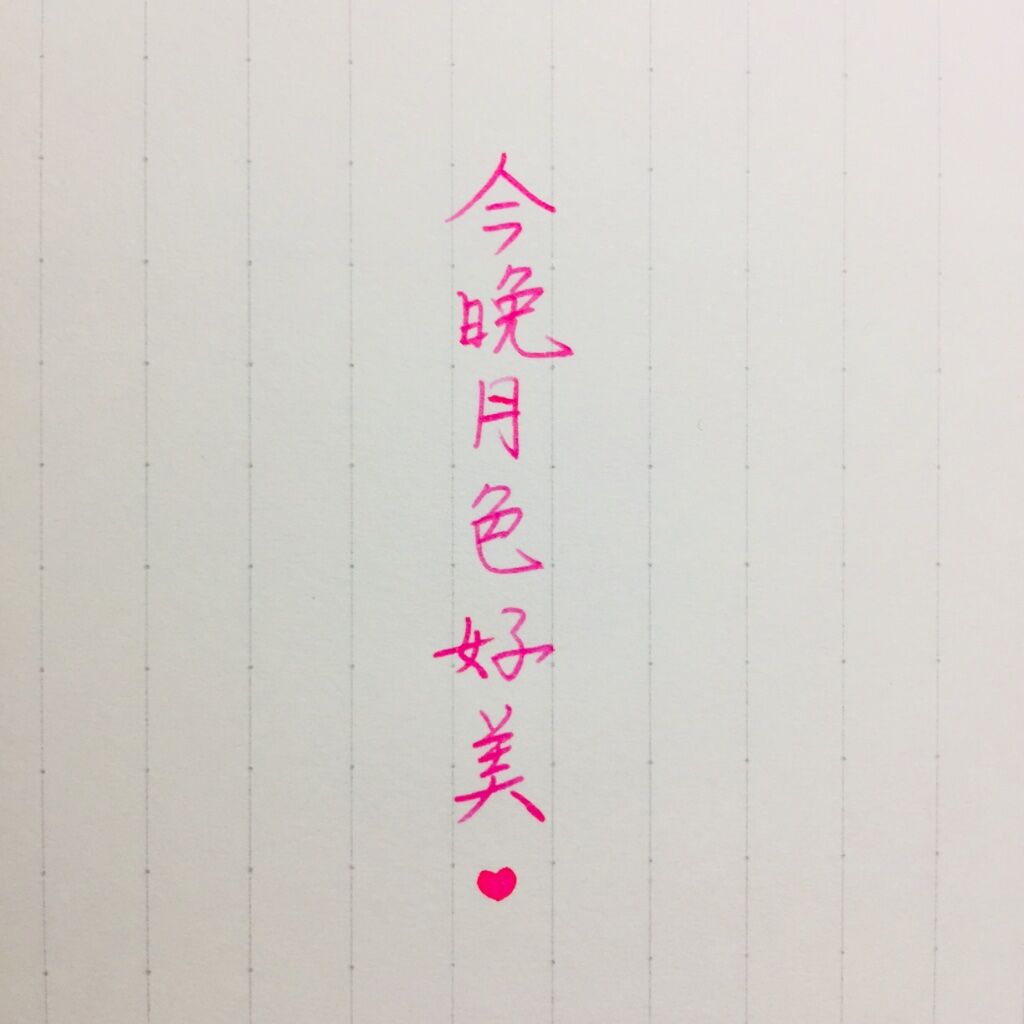 今晚月色好美